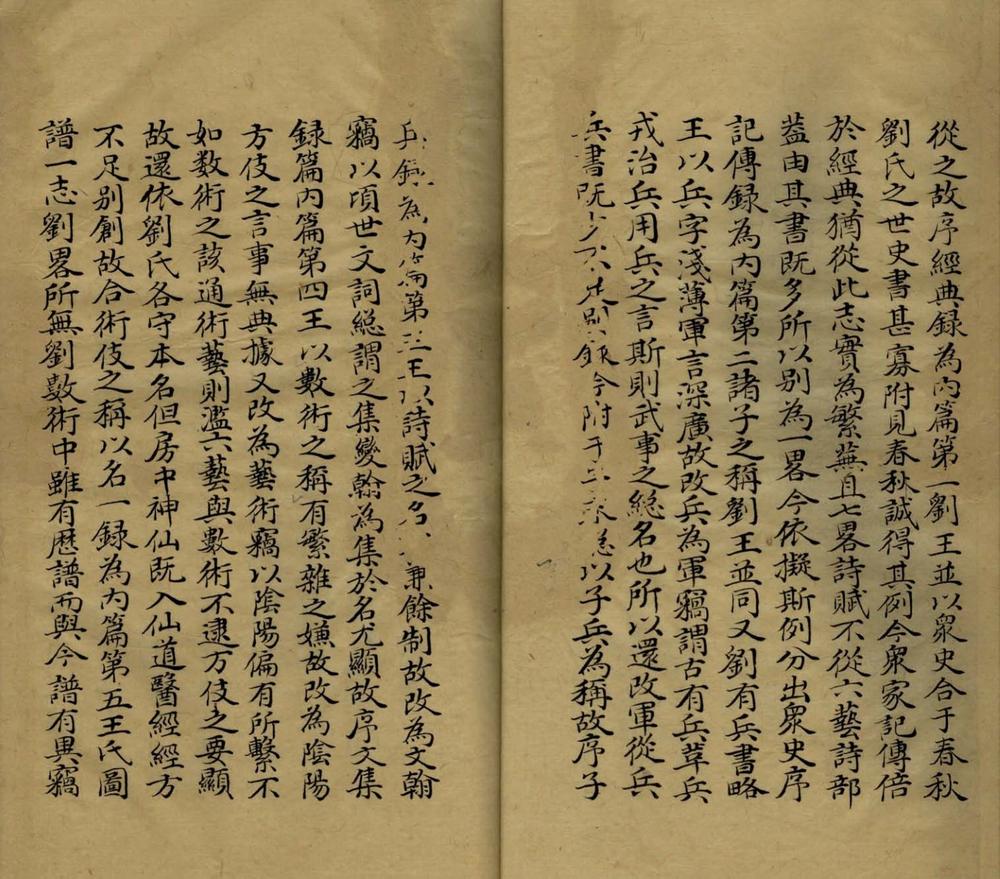 從之故序經典録為内篇第一劉王並以衆史合于春秋
劉氏之世史書甚寡附見春秋誠得其例今衆家記傳倍
於經典猶從此志實為繁蕪且七畧詩賦不從六藝詩部
葢由其書既多所以别為一畧今依擬斯例分出衆史序
記傳録為内篇第二諸子之稱劉王並同又劉有兵書略
王以兵字淺薄軍言深廣故改兵為軍竊謂古有兵革兵
戎治兵用兵之言斯則武事之緫名也所以還改軍從兵
兵書既少不足别録今附于子末緫以子兵為稱故序子
兵録為内篇第三王以詩賦之名兼餘制故改為文翰
竊以頃世文詞緫謂之集變翰為集於名尤顯故序文集
録篇内篇第四王以數術之稱有繁雜之嫌故改為陰陽
方伎之言事無典據又改為藝術竊以陰陽偏有所繫不
如数術之該通術藝則濫六藝與數術不逮方伎之要顯
故還依劉氏各守本名但房中神仙既入仙道醫經經方
不足别創故合術伎之稱以名一録為内篇第五王氏圖
譜一志劉畧所無劉數術中雖有厯譜而與今譜有異竊